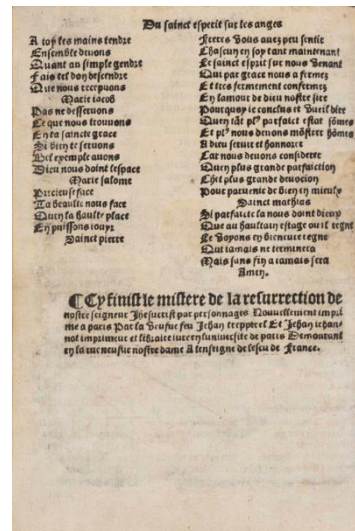 Du sainct esperit sur les anges
A toy les mains tendre
Ensemble devons
Quant au simple gendre
Fais tel don descendre
Que nous recepuons
Marie iacob
Pas ne desseruons
Ce que nous trouuons
En ta saincte grace
Si bien te seruons
Bel exemple auons
Dieu nous doint lespace
Marie salome
Precieuse face
Ta beaulte nous face
Quen la haulte place
En puissons iouyr
Sainct pierre
Freres vous auez peu sentir
Chascun en soy tant maintenant
Le sainct esprit sur nous venant
Qui par grace nous a fermez
Et tres fermement confermez
En lamour de dieu nostre sire
Pourquoy ie conclus et vueil dire
Quen tāt plꝰ parfaict estat sōmes
Et plꝰ nous deuons mōstrer hōmes
A dieu seruir et honnorer
Car nous deuons considerer
Quen plus grande parfaiction
Chet plus grande deuocion
Pour paruenir de bien en mieulx
Sainct mathias
Si parfaicte la nous doint dieux
Que au haultain estage ou il regne
Le voyons en bieneure regne
Qui iamais ne terminera
Mais sans fin a iamais sera
Amen.
¶ Cy finist le mistere de la resurrection de
nostre seigneur Jhesucrist par personnages Nouuellement impri
me a paris Par la veufue feu Jehan trepperel Et Jehan iehan-
not imprimeur et libraire iure en luniuersite de paris Demourant
en la rue neufue nostre dame A lenseigne de lescu de France.